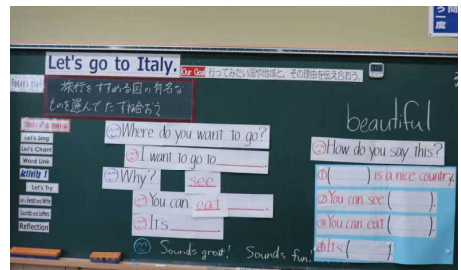 Let's go to Italy.
Our Goal 行ってみたい国や地域と、その理由を伝え合おう。
旅行をすすめる国の有名な
ものを選んでたずね合おう
Let's Sing
Let's Chant
Word Link
Activity 1
Let's Try
Let's Read and Write
Sounds and Letters
Reflection
Where do you want to go?
I want to go to
Why?
see
You can eat
It's
Sounds great! Sounds fun!
beautiful
How do you say this?
( ) is a nice country.
You can see ( ).
You can eat ( ).
It's ( ).
問
う一度